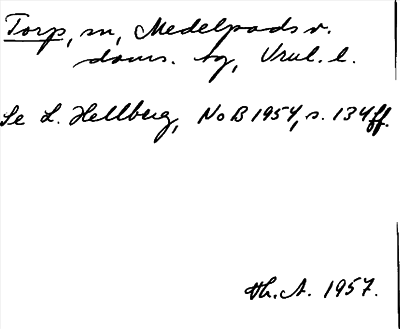 Torp, sn, Medelpads v.
doms. tg, Vnl. l.
Se L. Hellberg, NoB 1954, s. 134 ff.
Th. A. 1957.